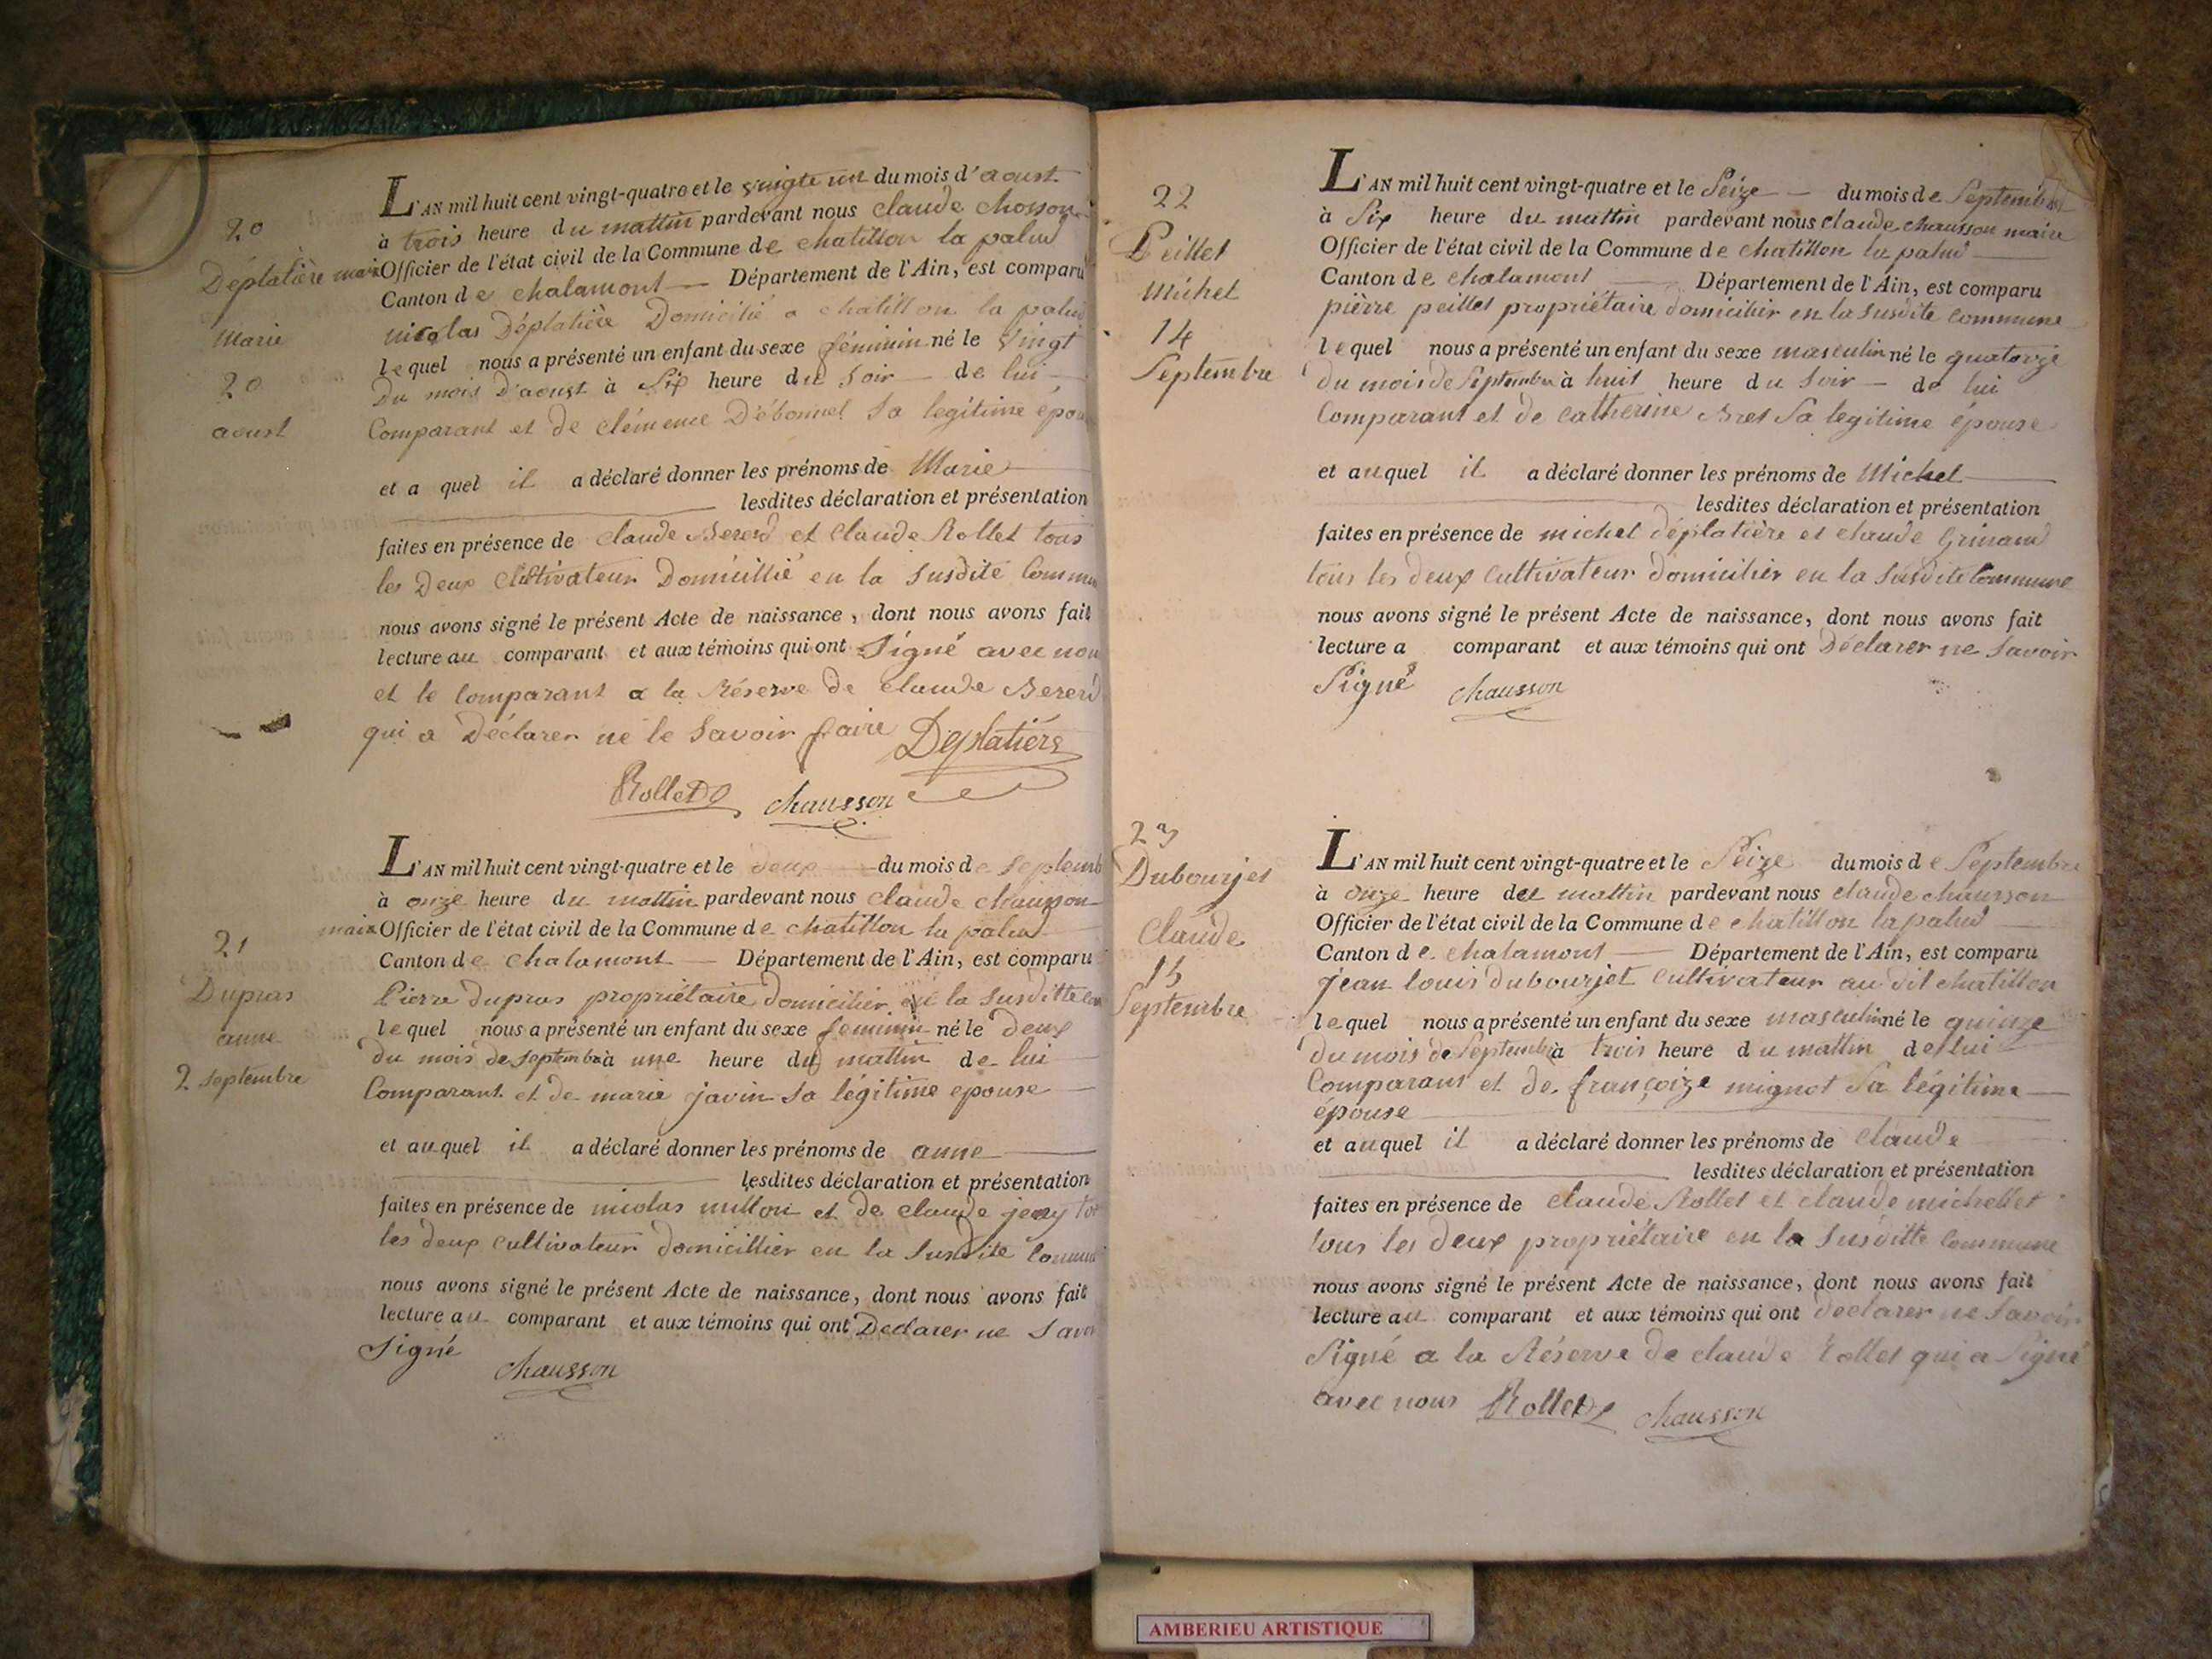 20
Déplatière
Marie
20
aoust
L'AN mil huit cent vingt-quatre et le vingte un du mois d'aoust
à trois heure du mattin pardevant nous claude chosson
maire Officier de l'état civil de la Commune de chatillon la palud
Canton de chalamont Département de l'Ain, est comparu
nicolas Déplatière Domicilié a chatillon la palud
lequel nous a présenté un enfant du sexe féminin né le vingt
Du mois D'aoust à Six heure du Soir de lui
Comparant et de clémence Débonnel Sa legitime épou
et a quel il a déclaré donner les prénoms de Marie
lesdites déclaration et présentation
faites en présence de claude Bererd et Claude Rollet tous
les Deux Cultivateur Domicillié en la Susdite Commu
nous avons signé le présent Acte de naissance, dont nous avons fait
lecture au comparant et aux témoins qui ont Signé avec nou
et le Comparant a la Réserve de claude Bererd
qui a Déclarer ne le Savoir faire Deplatière
Rollet chausson
21
Dupras
anne
2 septembre
L'AN mil huit cent vingt-quatre et le deux du mois de Septemb
à onze heure du mattin pardevant nous claude chausson
maire Officier de l'état civil de la Commune de chatillon la palud
Canton de chalamont Département de l'Ain, est comparu
Pierre dupras propriétaire domicilier en la Susditte com
lequel nous a présenté un enfant du sexe feminin né le deux
du mois de septembre à une heure du mattin de lui
Comparant et de marie javin Sa légitime epouse
et auquel il a déclaré donner les prénoms de anne
lesdites déclaration et présentation
faites en présence de nicolas millon et de claude
les deux cultivateur domicillier en la Susdite
nous avons signé le présent Acte de naissance, dont nous avons fait
lecture au comparant et aux témoins qui ont Declarer ne Savoi
Signé
chausson
22
Peillet
Michel
14
Septembre
L'AN mil huit cent vingt-quatre et le Seize du mois de Septembre
à Six heure du mattin pardevant nous claude chausson maire
Officier de l'état civil de la Commune de chatillon la palud
Canton de chalamont Département de l'Ain, est comparu
pièrre peillet propriétaire domicilier en la Susdite commune
lequel nous a présenté un enfant du sexe masculin né le quatorze
du mois de Septembre à huit heure du Soir de lui
Comparant et de catherine Bret Sa legitime épouse
et auquel il a déclaré donner les prénoms de Michel
lesdites déclaration et présentation
faites en présence de michel déplatière et claude Grinand
tous les deux cultivateur domicilier en la Susdite Commune
nous avons signé le présent Acte de naissance, dont nous avons fait
lecture a comparant et aux témoins qui ont Déclarer ne Savoir
Signé chausson
23
Dubourjet
Claude
15
Septembre
L'AN mil huit cent vingt-quatre et le Seize du mois de Septembre
à onze heure du mattin pardevant nous claude chausson
Officier de l'état civil de la Commune de chatillon la palud
Canton de chalamont Département de l'Ain, est comparu
jean louis dubourjet Cultivateur au dit chatillon
lequel nous a présenté un enfant du sexe masculin né le quinze
du mois de Septembre à trois heure du mattin de lui
Comparant et de françoize mignot Sa légitime
épouse
et auquel il a déclaré donner les prénoms de Claude
lesdites déclaration et présentation
faites en présence de claude Rollet et claude michellet
tous les deux propriétaire en la Susditte Commune
nous avons signé le présent Acte de naissance, dont nous avons fait
lecture au comparant et aux témoins qui ont declarer ne Savoir
Signé a la Réserve de claude Rollet qui a Signé
avec nous Rollet chausson
AMBERIEU ARTISTIQUE